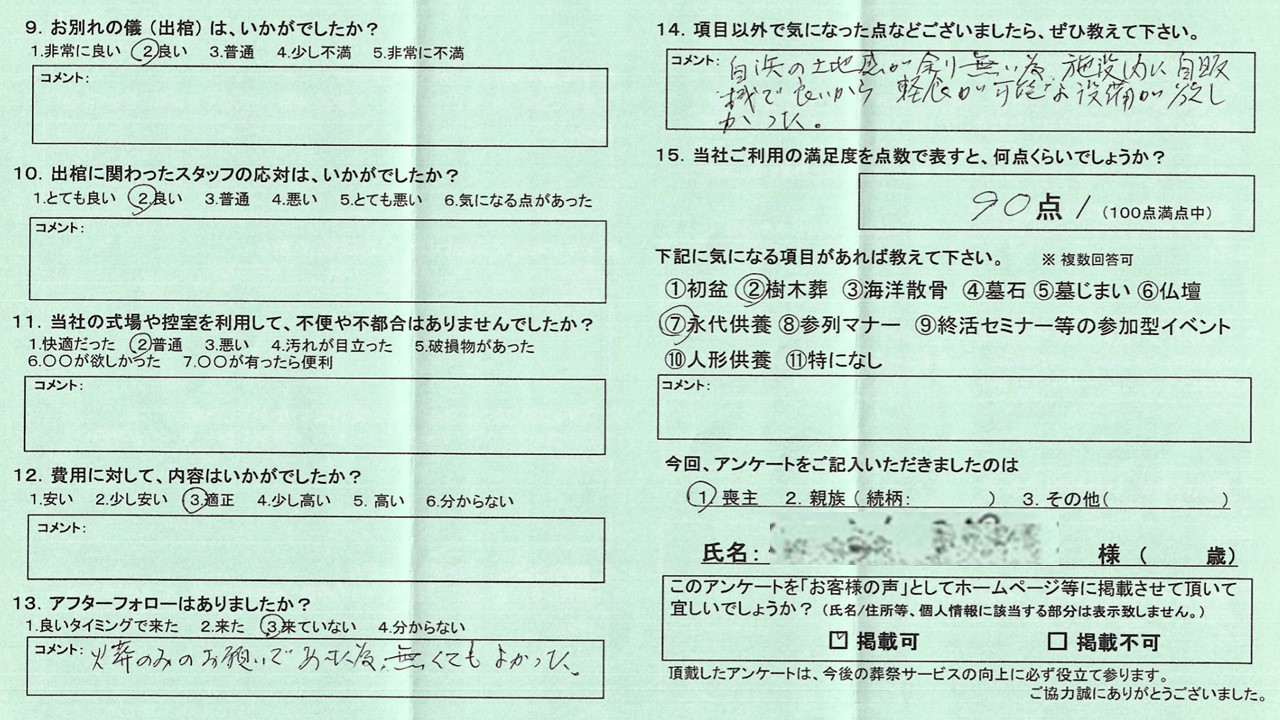 9. お別れの儀（出棺）は、いかがでしたか？
1.非常に良い ②良い 3.普通 4.少し不満 5.非常に不満
コメント：
10. 出棺に関わったスタッフの応対は、いかがでしたか？
1.とても良い ②良い 3.普通 4.悪い 5.とても悪い 6.気になる点があった
コメント：
11. 当社の式場や控室を利用して、不便や不都合はありませんでしたか？
1.快適だった ②普通 3.悪い 4.汚れが目立った 5.破損物があった
6.〇〇が欲しかった 7.〇〇が有ったら便利
コメント：
12. 費用に対して、内容はいかがでしたか？
1.安い 2.少し安い ③適正 4.少し高い 5. 高い 6.分からない
コメント：
13. アフターフォローはありましたか？
1.良いタイミングで来た 2.来た ③来ていない 4.分からない
コメント：火葬のみのお願いであった為、無くてもよかった。
14. 項目以外で気になった点などございましたら、ぜひ教えて下さい。
コメント：白浜の土地感が余り無い為、施設内に自販
機で良いから 軽食が可能な設備が欲し
かった。
15. 当社ご利用の満足度を点数で表すと、何点くらいでしょうか？
90点 （100点満点中）
下記に気になる項目があれば教えて下さい。 ※ 複数回答可
①初盆 ②樹木葬 ③海洋散骨 ④墓石 ⑤墓じまい ⑥仏壇
⑦永代供養 ⑧参列マナー ⑨終活セミナー等の参加型イベント
⑩人形供養 ⑪特になし
コメント：
今回、アンケートをご記入いただきましたのは
1. 喪主 2. 親族（続柄： ） 3. その他（ ）
氏名： 様（ 歳）
このアンケートを「お客様の声」としてホームページ等に掲載させて頂いて
宜しいでしょうか？（氏名/住所等、個人情報に該当する部分は表示致しません。）
☑ 掲載可 □ 掲載不可
頂戴したアンケートは、今後の葬祭サービスの向上に必ず役立て参ります。
ご協力誠にありがとうございました。